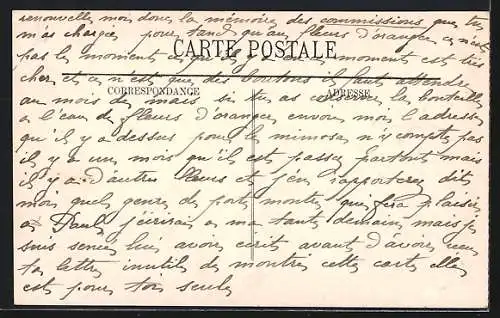 renouvelle moi donc la mémoire des commissions que tu
m'as chargée pour tant qu'au fleurs d'oranger ce n'est
CARTE POSTALE
pas le moment ce qu'il y en a en ce moment est très
cher et ce n'est que des boutons il faut attendre
CORRESPONDANCE
ADRESSE
au mois de mais si tu as conservé la bouteille
a l'eau de fleurs d'oranger envoi moi l'adresse
qu'il y a dessus pour le mimosa n'y compte pas
il y a un mois qu'il est passé partout mais
il y a d'autre fleurs et j'en rapporterai dit
moi quel genre de porte montre que fera plaisir
a Paul j'écrirai a m tante demain mais je
suis sensé lui avoir écrit avant d'avoir reçu
ta lettre inutile de montrer cette carte elle
est pour toi seule